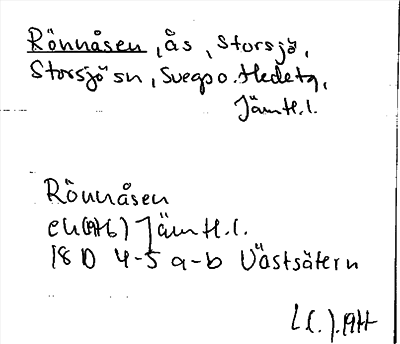 Rönnåsen, ås, Storsjö,
Storsjö sn, Svegs o. Hede tg,
Jämtl.l.
Rönnåsen
Jämtl.l.
18 D 4-5 a-b Västsätern